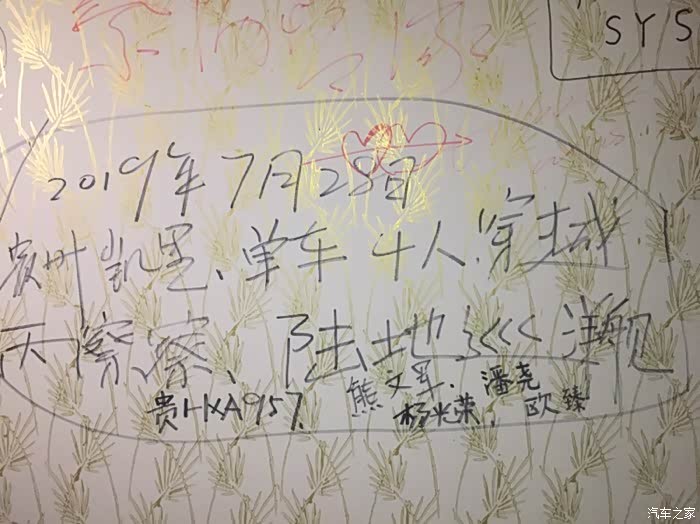 SYS
2019年7月28日
贵州凯里、单车 4人.穿城
天察察、陆地巡<<<洋舰
熊文军、潘尧
贵HXA957、杨光荣、欧臻
汽车之家